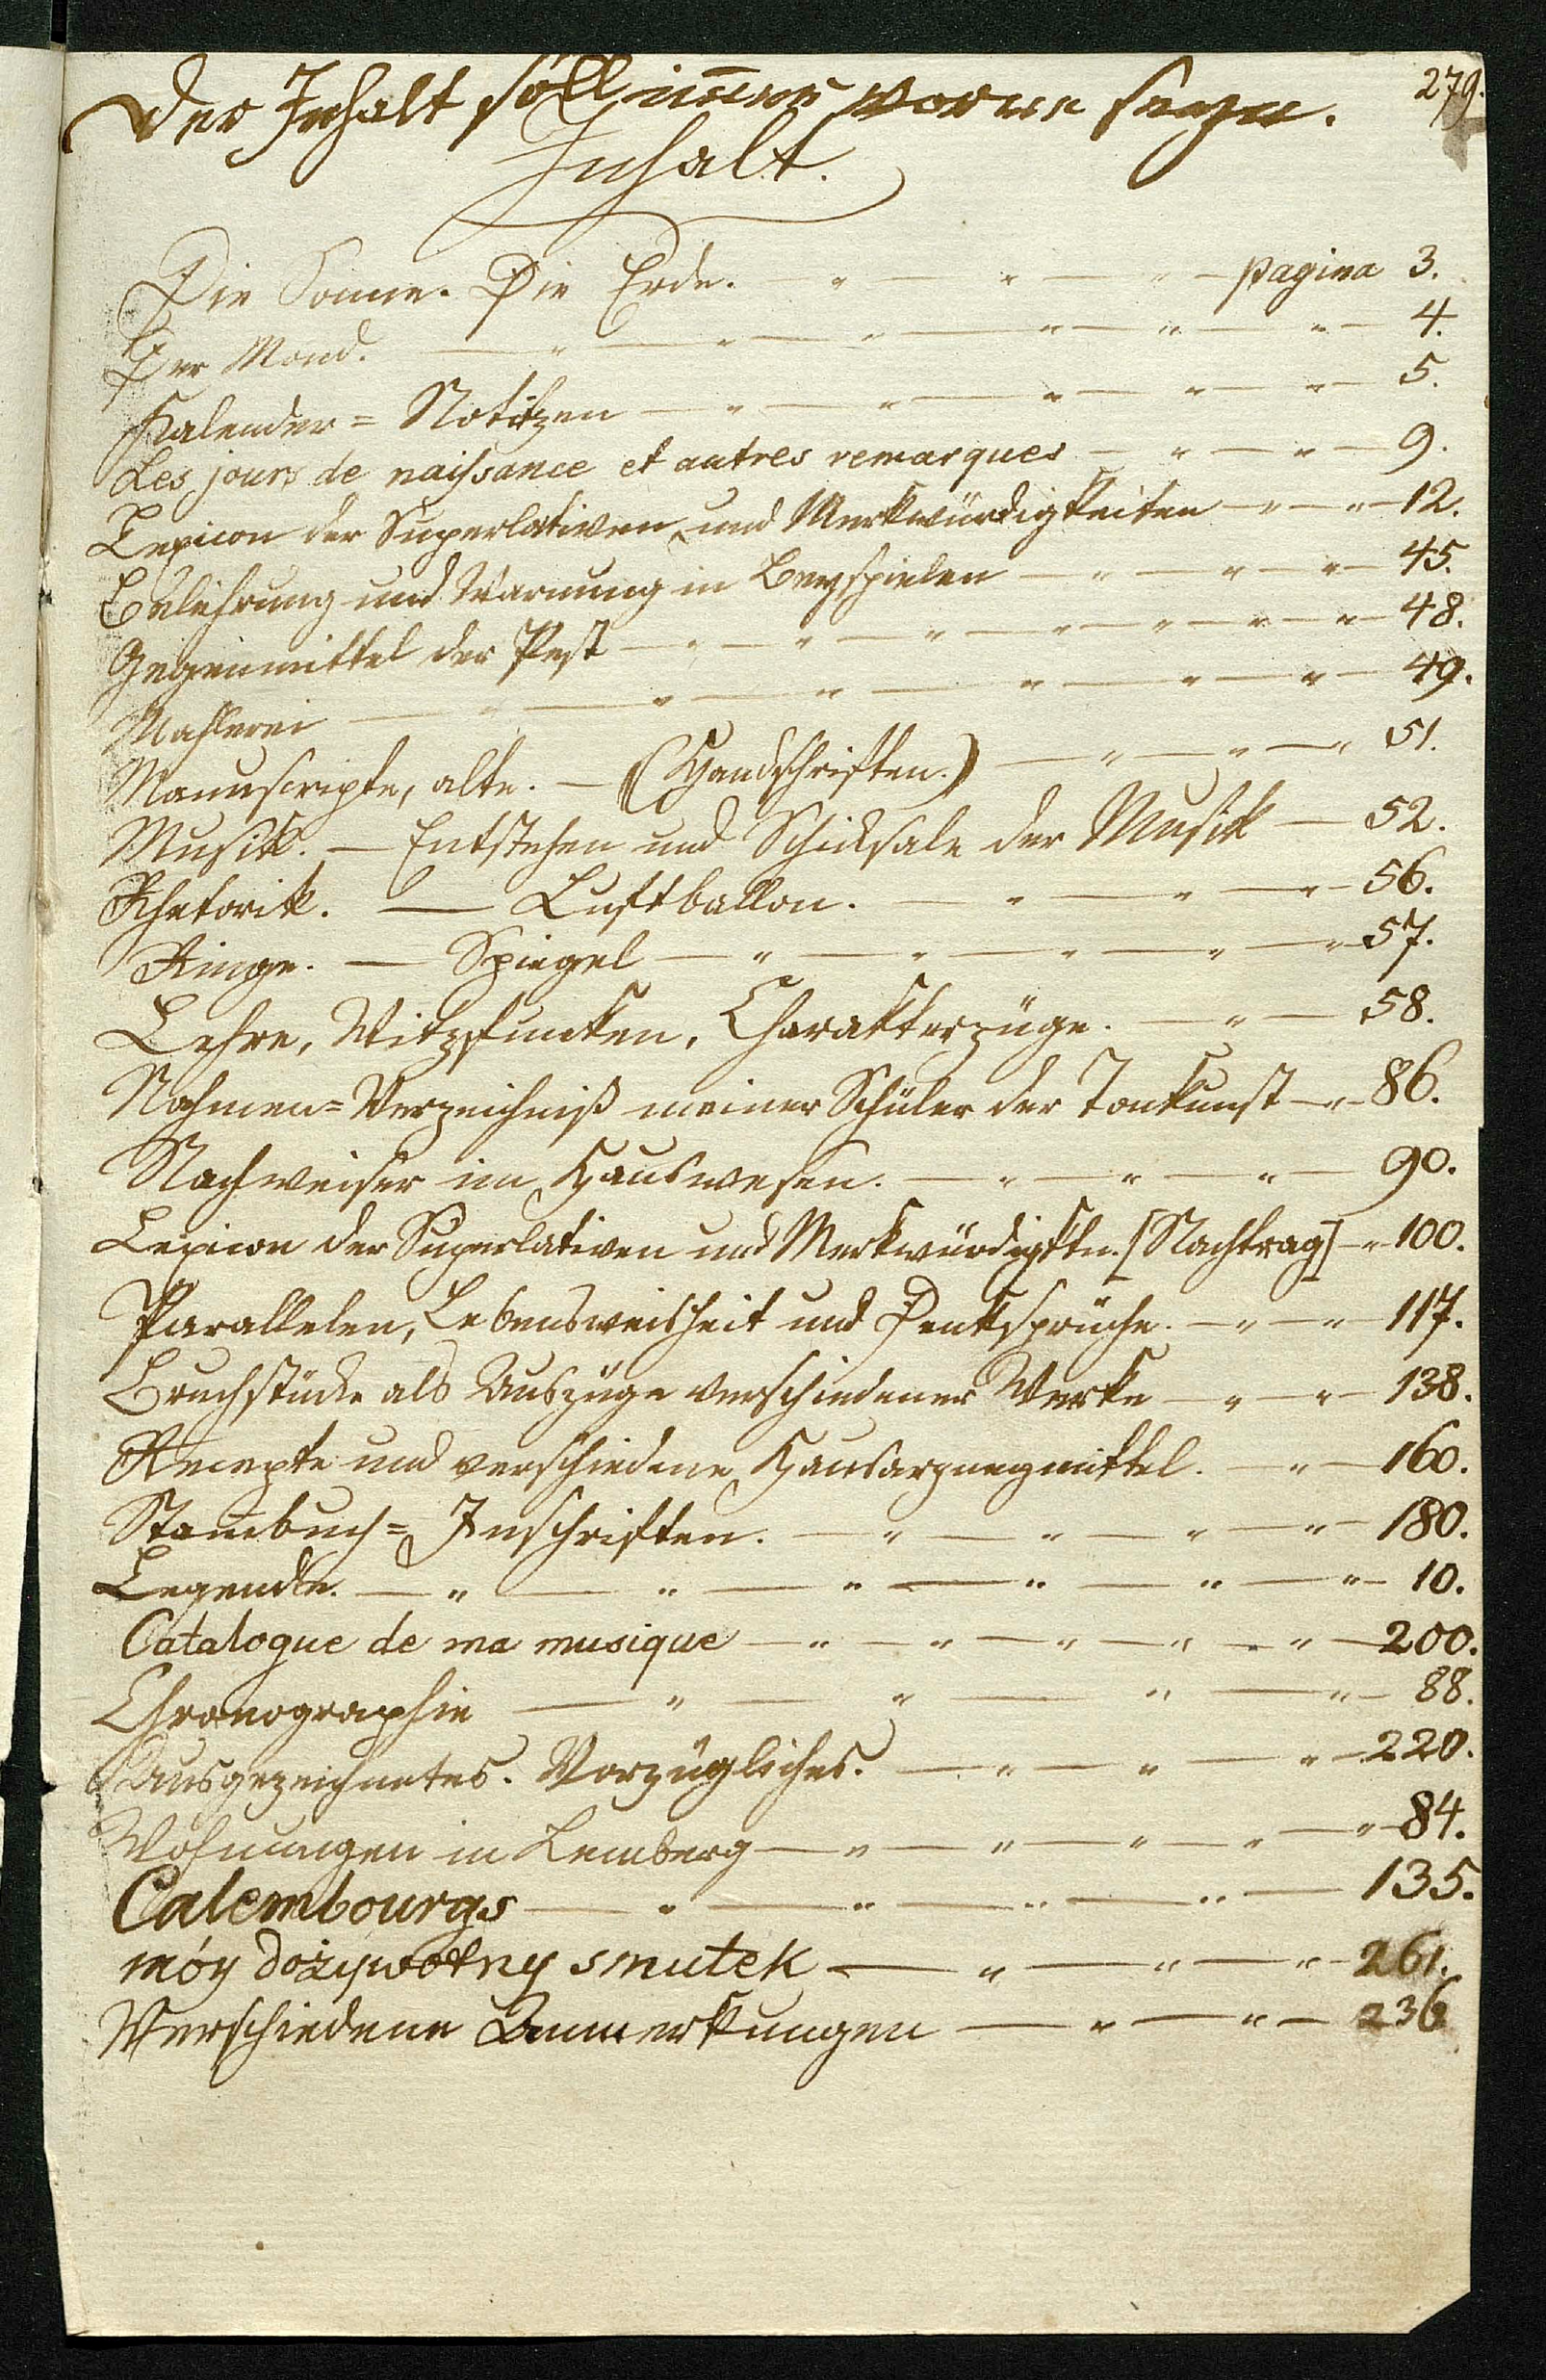 279.
Der Inhalt soll immer vorne seyn.
Inhalt.
Die Sonne. Die Erde. — „ — „ — „ — pagina 3.
Der Mond. — „ — „ — „ — „ — „ — „ — 4.
Kalender = Notitzen — „ — „ — „ — „ — „ — 5.
Les jours de naissance et autres remarques — „ — „ — 9.
Lexicon der Superlativen und Merkwürdigkeiten — „ — „ — 12.
Belehrung und Warnung in Beyspielen — „ — „ — „ — 45.
Gegenmittel der Pest — „ — „ — „ — „ — „ — „ — „ — 48.
Mahlerei — „ — „ — „ — „ — „ — „ — 49.
Manuscripte, alte. — (Handschriften.) — „ — „ — „ 51.
Musik. — Entstehen und Schicksale der Musik — 52.
Rhetorik. — Luftballon. — „ — „ — „ — 56.
Ringe. — Spiegel — „ — „ — „ — „ — „ — 57.
Lehre, Witzfunken, Charakterzüge. — „ — 58.
Nahmen = Verzeichniß meiner Schüler der Tonkunst — „ — 86.
Nachweiser im Hauswesen. — „ — „ — „ — 90.
Lexicon der Superlativen und Merkwürdigktn. [Nachtrag] — „ 100.
Parallelen, Lebensweisheit und Denksprüche. — „ — „ — 117.
Bruchstücke als Auszüge verschiedener Werke — „ — „ — 138.
Recepte und verschiedene Hausarzneymittel. — „ — 160.
Stam̅buch = Inschriften. — „ — „ — „ — „ — 180.
Legende. — „ — „ — „ — „ — „ — „ — 10.
Catalogue de ma musique — „ — „ — „ — „ — „ — 200.
Chronographie — „ — „ — „ — „ — 88.
Ausgezeichnetes. Vorzügliches. — „ — „ — „ — 220.
Wohnungen in Lemberg — „ — „ — „ — „ — „ — 84.
Calembourgs — „ — „ — „ — „ — 135.
móy dożywotny smutek — „ — „ — „ — 261.
Verschiedene Anmerkungen — „ — „ — 236